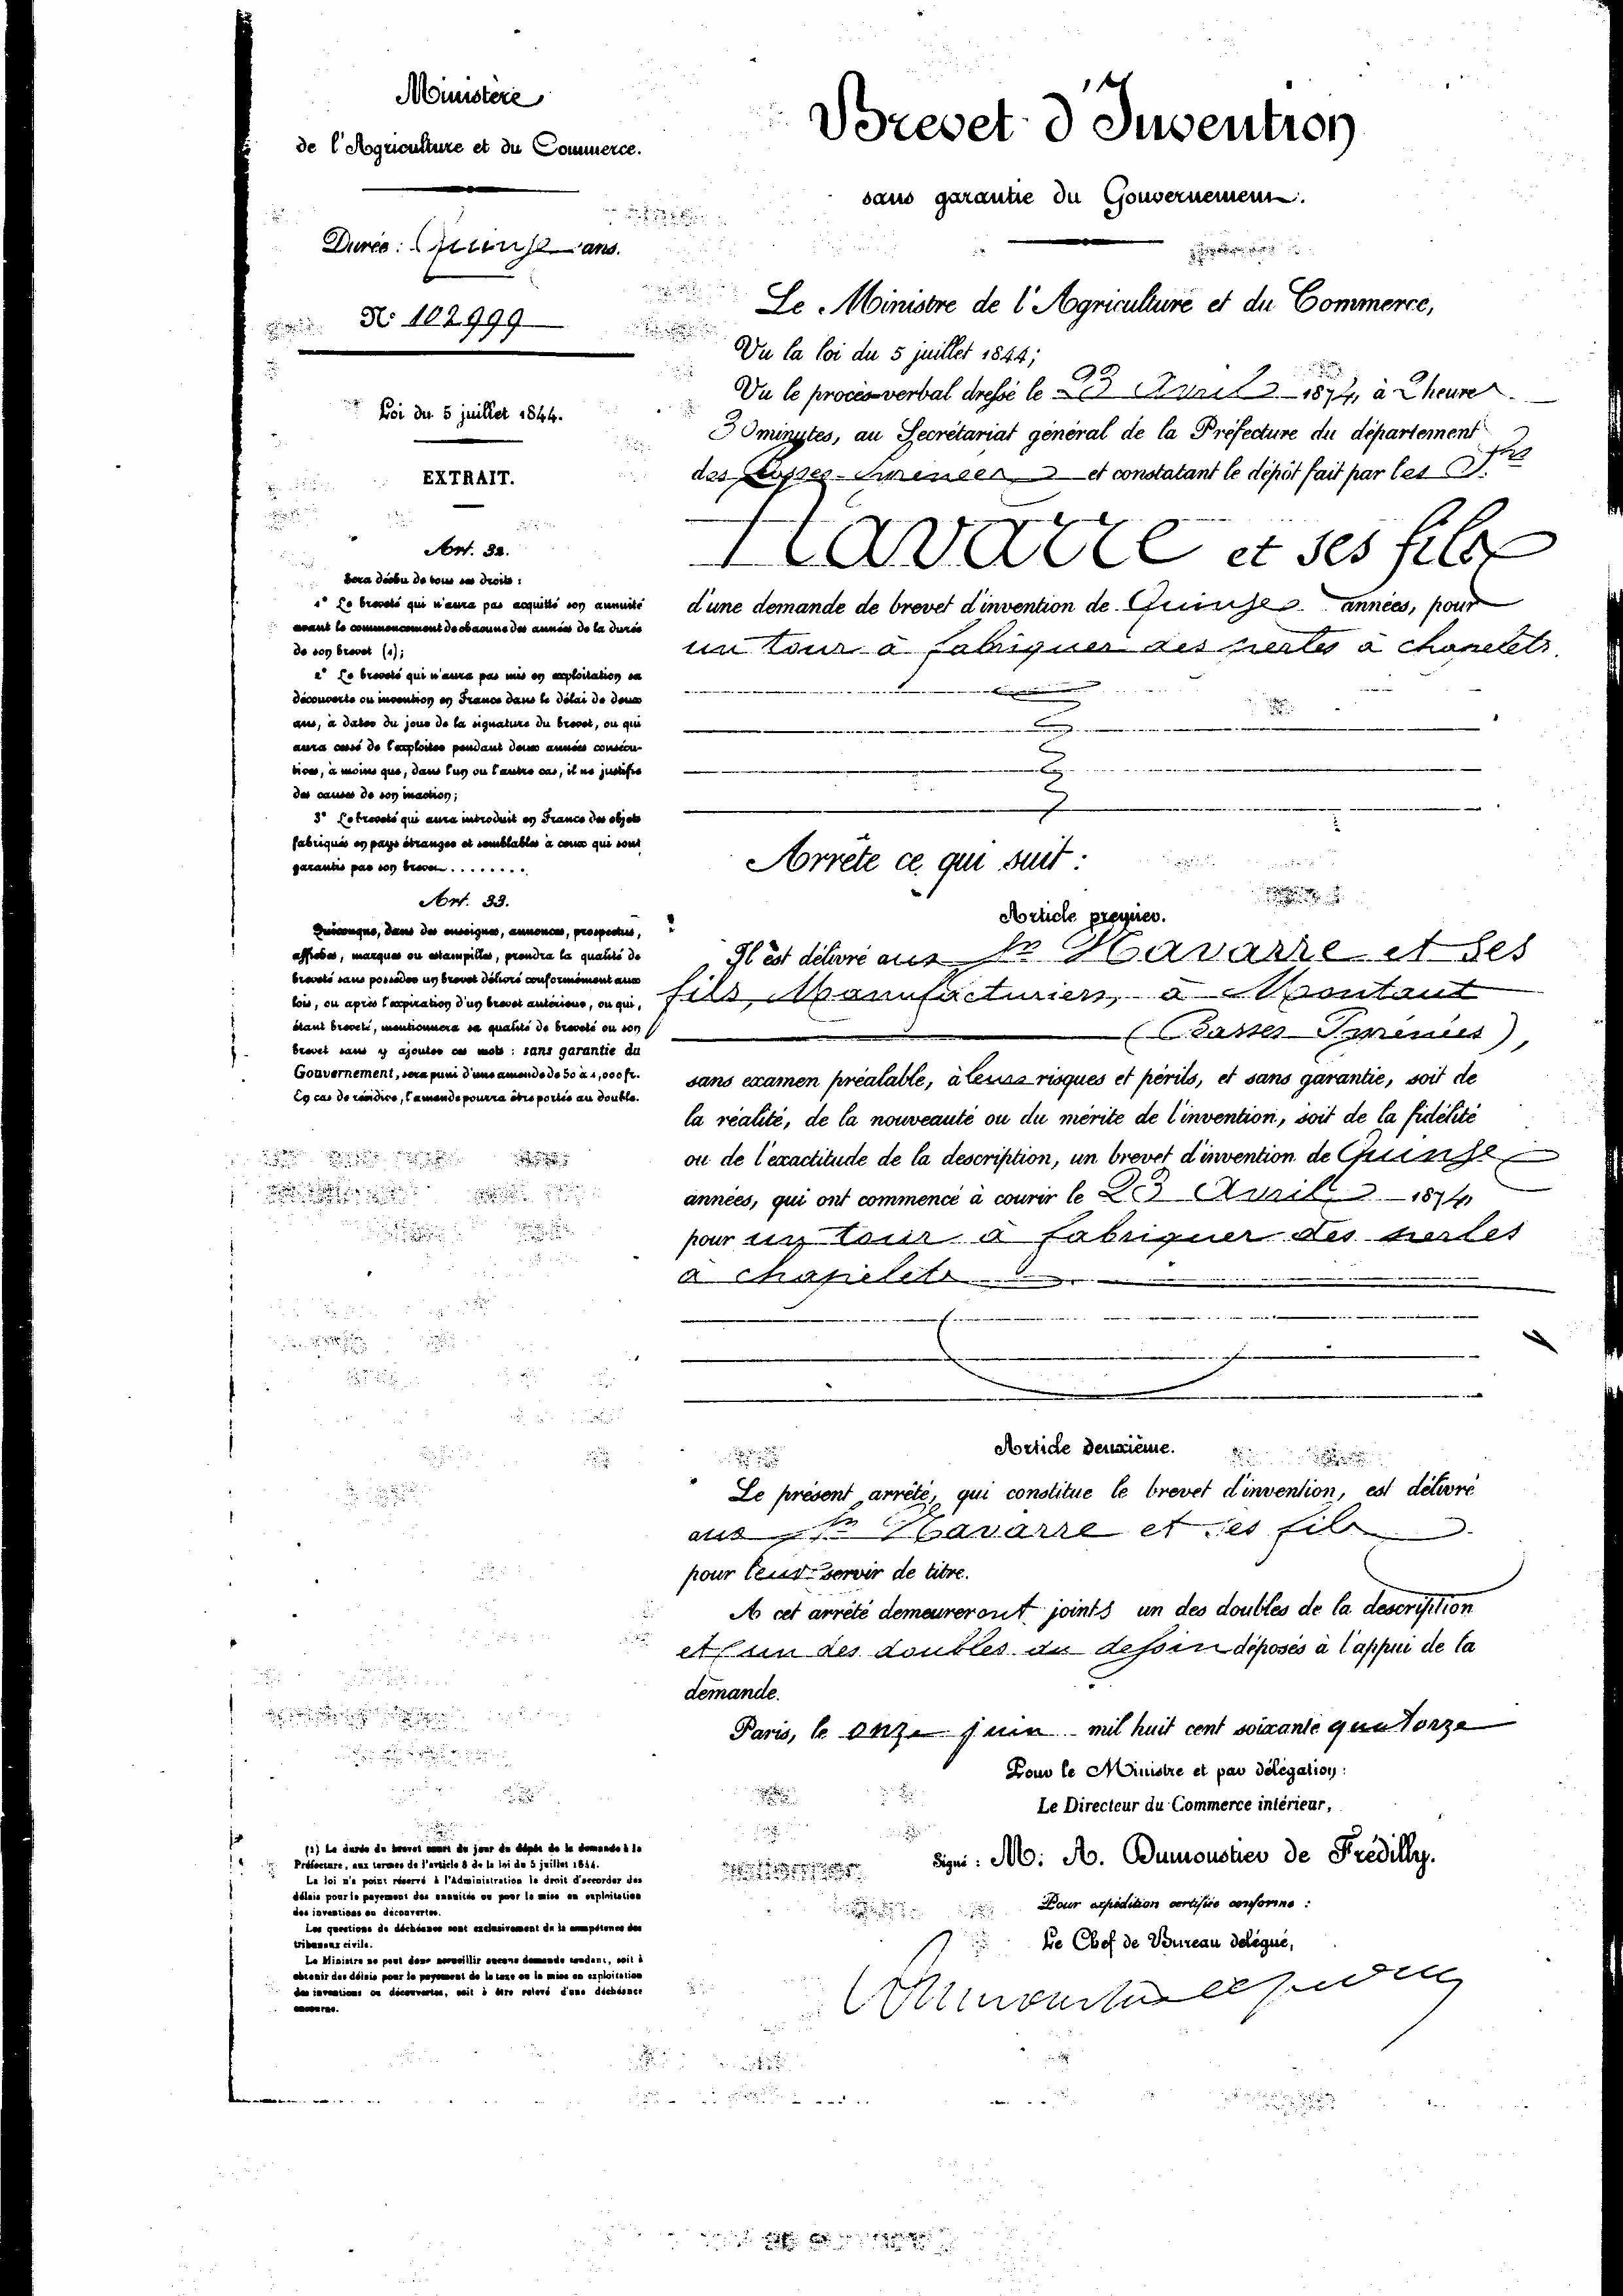 Ministère
de l'Agriculture et du Commerce.
Durée : Quinze ans.
N° 102999
Loi du 5 juillet 1844.
EXTRAIT.
Art. 32.
Sera déchu de tous ses droits :
1° Le breveté qui n'aura pas acquitté son annuité
avant le commencement de chacune des années de la durée
de son brevet (1);
2° Le breveté qui n'aura pas mis en exploitation sa
découverte ou invention en France dans le délai de deux
ans, à dater du jour de la signature du brevet, ou qui
aura cessé de l'exploiter pendant deux années consécu-
tives, à moins que, dans l'un ou l'autre cas, il ne justifie
des causes de son inaction;
3° Le breveté qui aura introduit en France des objets
fabriqués en pays étranger et semblables à ceux qui sont
garantis par son brevet........
Art. 33.
Quiconque, dans des enseignes, annonces, prospectus,
affiches, marques ou estampilles, prendra la qualité de
breveté sans posséder un brevet délivré conformément aux
lois, ou après l'expiration d'un brevet antérieur, ou qui,
étant breveté, mentionnera sa qualité de breveté ou son
brevet sans y ajouter ces mots : sans garantie du
Gouvernement, sera puni d'une amende de 50 à 1,000 fr.
En cas de récidive, l'amende pourra être portée au double.
(1) La durée du brevet court du jour du dépôt de la demande à la
Préfecture, aux termes de l'article 8 de la loi du 5 juillet 1844.
La loi n'a point réservé à l'Administration le droit d'accorder des
délais pour le payement des annuités ou pour la mise en exploitation
des inventions ou découvertes.
Les questions de déchéance sont exclusivement de la compétence des
tribunaux civils.
Le Ministre ne peut donc accueillir aucune demande tendant, soit à
obtenir des délais pour le payement de la taxe ou la mise en exploitation
des inventions ou découvertes, soit à être relevé d'une déchéance
encourue.
Brevet d'Invention
sans garantie du Gouvernement.
Le Ministre de l'Agriculture et du Commerce,
Vu la loi du 5 juillet 1844;
Vu le procès-verbal dressé le 23 Avril 1874, à 2 heures
30 minutes, au Secrétariat général de la Préfecture du département
des Basses-Pyrénées et constatant le dépôt fait par les Srs
Navarre et ses fils
d'une demande de brevet d'invention de Quinze années, pour
un tour à fabriquer des perles à chapelets.
Arrête ce qui suit :
Article premier.
Il est délivré aux Srs Navarre et ses
fils, Manufacturiers, à Montaut
(Basses Pyrénées),
sans examen préalable, à leurs risques et périls, et sans garantie, soit de
la réalité, de la nouveauté ou du mérite de l'invention, soit de la fidélité
ou de l'exactitude de la description, un brevet d'invention de Quinze
années, qui ont commencé à courir le 23 Avril 1874
pour un tour à fabriquer des perles
à chapelets
Article deuxième.
Le présent arrêté, qui constitue le brevet d'invention, est délivré
aux Srs Navarre et ses fils
pour leur servir de titre.
A cet arrêté demeureront joints un des doubles de la description
et un des doubles du dessin déposés à l'appui de la
demande.
Paris, le onze juin mil huit cent soixante quatorze
Pour le Ministre et par délégation :
Le Directeur du Commerce intérieur,
Signé : M. A. Dumoustier de Frédilly.
Pour expédition certifiée conforme :
Le Chef de Bureau délégué,